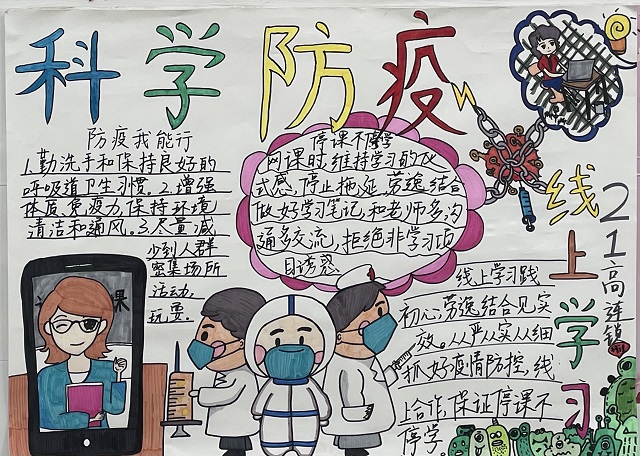 科学防疫
防疫我能行
1.勤洗手和保持良好的
呼吸道卫生习惯.2.增强
体质,免疫力,保持环境
清洁和通风.3.尽量减
少到人群
密集场所
活动,
玩耍.
停课不停学
网课时,维持学习的仪
式感,停止拖延,劳逸结合
做好学习笔记,和老师多沟
通多交流,拒绝非学习项
目诱惑
线上学习
线上学习践
初心,劳逸结合见实
放。从严从实从细
抓好疫情防控,线
上合作,保证停课不
停学。
21高
课